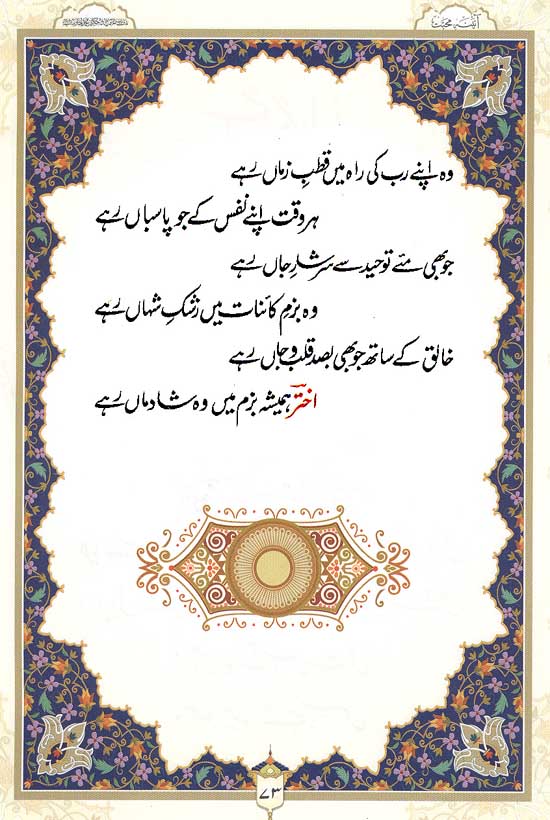 آئینۂ محبت
وہ اپنے رب کی راہ میں قطبِ زماں رہے
ہر وقت اپنے نفس کے جو پاسباں رہے
جو بھی مئے توحید سے سرشارِ جاں رہے
وہ بزمِ کائنات میں رشکِ شہاں رہے
خالق کے ساتھ جو بھی بصد قلب و جاں رہے
اخترؔ ہمیشہ بزم میں وہ شادماں رہے
۷۳